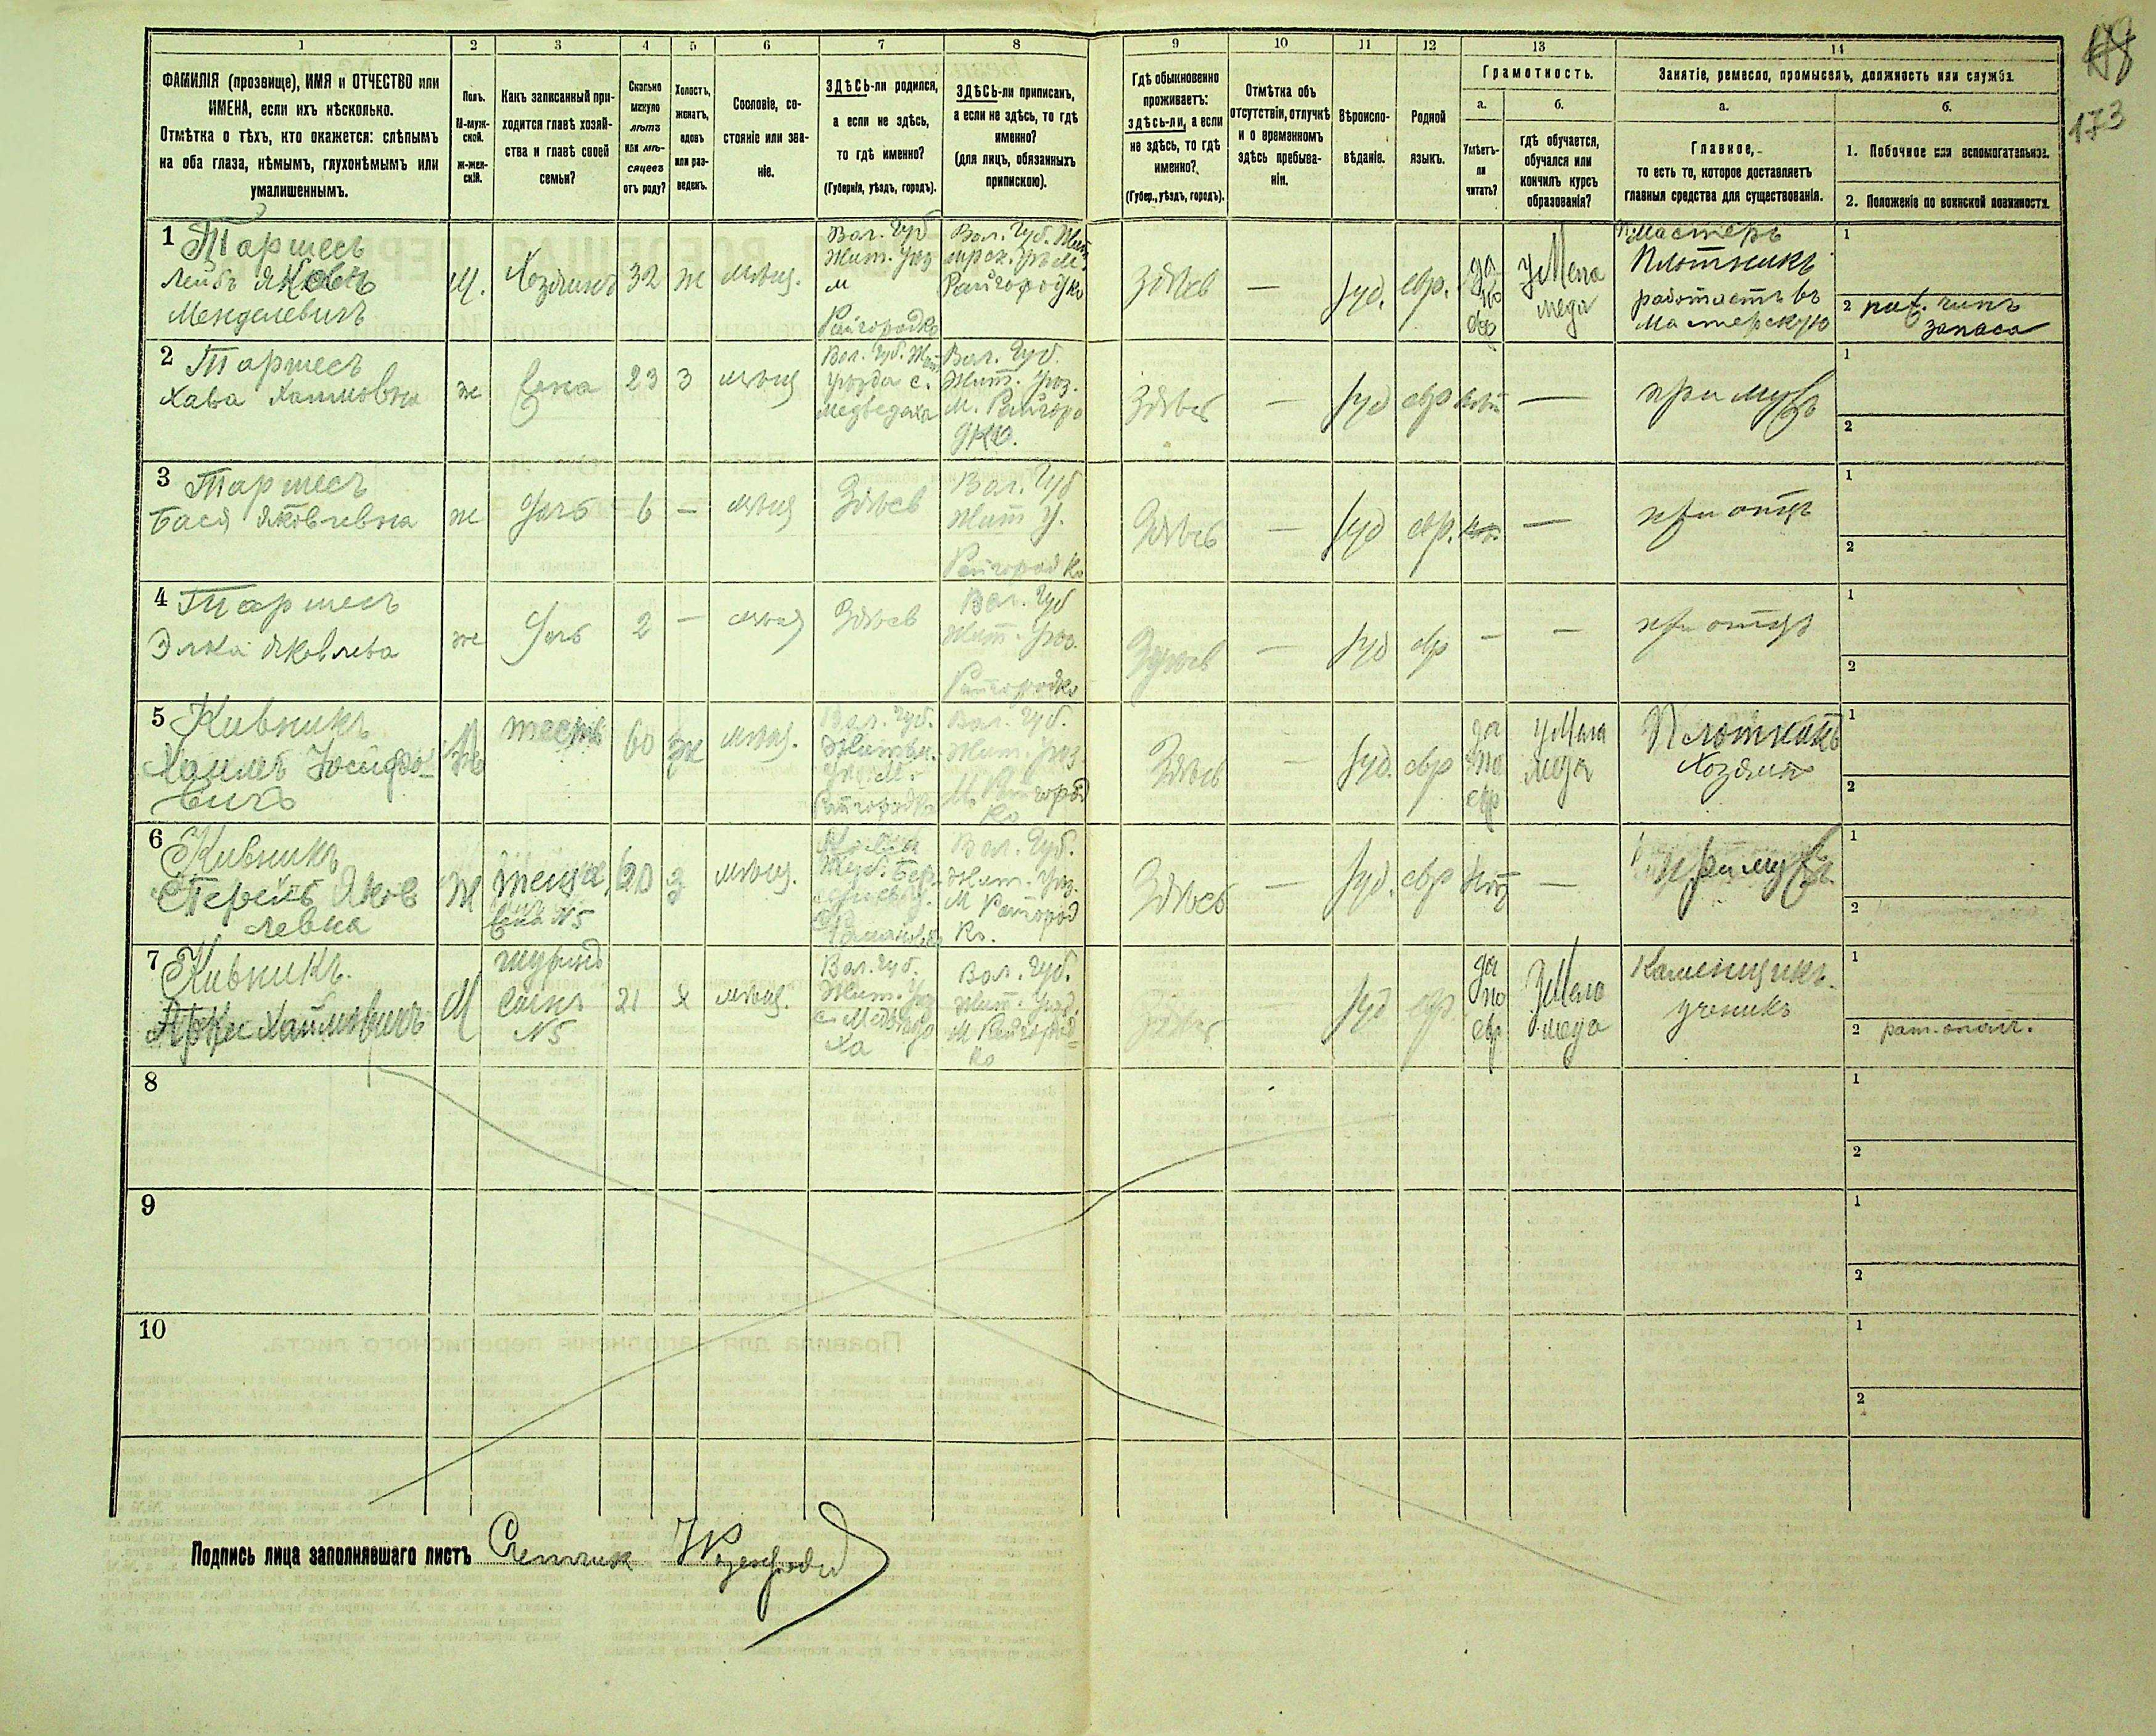 173
1 2 3 4 5 6 7 8 9 10 11 12 13 14
ФАМИЛІЯ (прозвище), ИМЯ и ОТЧЕСТВО или
ИМЕНА, если ихъ нѣсколько.
Отмѣтка о тѣхъ, кто окажется: слѣпымъ
на оба глаза, нѣмымъ, глухонѣмымъ или
умалишеннымъ.
Полъ.
М-муж-
ской.
ж-жен-
скій.
Какъ записанный при-
ходится главѣ хозяй-
ства и главѣ своей
семьи?
Сколько
минуло
лѣтъ
или мѣ-
сяцевъ
отъ роду?
Холостъ,
женатъ,
вдовъ
или раз-
веденъ.
Сословіе, со-
стояніе или зва-
ніе.
ЗДѢСЬ-ли родился,
а если не здѣсь,
то гдѣ именно?
(Губернія, уѣздъ, городъ).
ЗДѢСЬ-ли приписанъ,
а если не здѣсь, то гдѣ
именно?
(для лицъ, обязанныхъ
припискою).
Гдѣ обыкновенно
проживаетъ:
здѣсь-ли, а если
не здѣсь, то гдѣ
именно?
(Губер., уѣздъ, городъ).
Отмѣтка объ
отсутствіи, отлучкѣ
и о временномъ
здѣсь пребыва-
ніи.
Вѣроиспо-
вѣданіе.
Родной
языкъ.
Грамотность.
а.
Умѣетъ-
ли
читать?
б.
гдѣ обучается,
обучался или
кончилъ курсъ
образованія?
Занятіе, ремесло, промыселъ, должность или служба.
а.
Главное,
то есть то, которое доставляетъ
главныя средства для существованія.
б.
1. Побочное или вспомогательное.
2. Положеніе по воинской повинности.
1 Таршесъ
Лейбъ
Менделевичъ
М.
Хозяинъ
32
ж
мѣщ.
Вол. Губ
Жит. Уѣз
м
Райгородка
Вол. Губ. Жит
Райгородка
Здѣсь
—
Іуд.
евр.
да
по
евр
у Мела
меда
Мастеръ
Плотникъ
работаетъ въ
Мастерскую
1
2
запаса
2 Таршесъ
Хава Хаимовна
ж
жена
23
з
мѣщ
Вол. Губ. Жит
Уѣзда с.
Медведаха
Вол. Губ.
Жит. Уѣз.
М. Райгоро
дка.
Здѣсь
—
Іуд
евр
нѣт
—
при мужѣ
1
2
3 Таршесъ
Бася Яковлевна
ж
дочь
6
—
мѣщ
Здѣсь
Вол. Губ
Жит У.
Райгородка
Здѣсь
—
Іуд
евр.
—
при отцѣ
1
2
4 Таршесъ
Элка Яковлева
ж
дочь
2
—
мѣщ
Здѣсь
Вол. Губ
Жит. Уѣз.
Райгородка
Здѣсь
—
Іуд
евр
—
—
при отцѣ
1
2
5 Кивникъ
Хаимъ Іосифо-
вичъ
тесть
60
ж
мѣщ.
Вол. Губ.
Райгородка
Вол. Губ.
Жит. Уѣз
М. Райгород
ка
Здѣсь
—
Іуд.
евр
да
по
евр
у Мела
меда
Плотникъ
Хозяинъ
1
2
6 Кивникъ
Яков
левна
Ж
теща
жена №5
з
мѣщ.
Вол. Губ.
Жит. Уѣз.
М Райгород
ка.
Здѣсь
—
Іуд.
евр
нѣт
—
при мужѣ
1
2
7 Кивникъ
Хаимовичъ
М
шуринъ
сынъ
№5
21
х
мѣщ.
Вол. Губ.
Жит. Уѣз
с. Медвѣдо
ха
Вол. Губ.
Жит. Уѣз.
М Райгород-
ка
Здѣсь
Іуд
евр.
да
по
евр
у Мела
меда
Каменщикъ
ученикъ
1
2 рат. ополч.
8
1
2
9
1
2
10
1
2
Подпись лица заполнявшаго листъ Счетчик